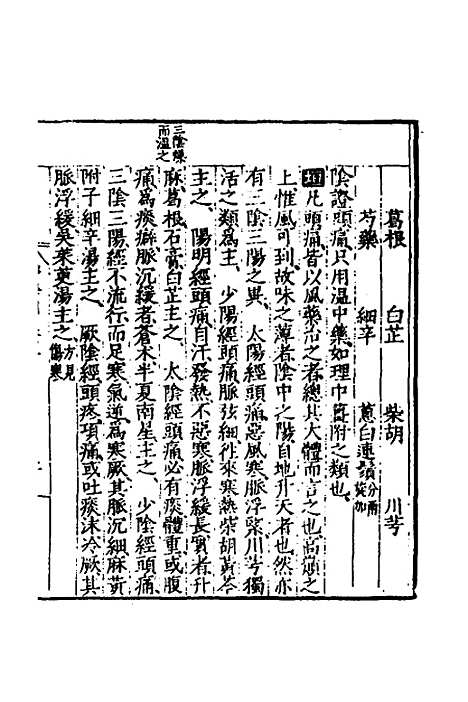 葛根 白芷 柴胡 川芎
芍藥 細辛 蔥白連鬚分兩
陰證頭痛只用溫中藥如理中薑附之類也
垣凡頭痛皆以風藥治之者總其大體而言之也高顛之
上惟風可到故味之薄者陰中之陽自地升天者也然亦
有三陰三陽之異 太陽經頭痛惡風寒脈浮緊川芎獨
活之類爲主 少陽經頭痛脈弦細徃來寒熱柴胡黃芩
主之 陽明經頭痛自汗發熱不惡寒脈浮緩長實者升
麻葛根石膏白芷主之 太陰經頭痛必有痰體重或腹
痛爲痰癖脈沉緩者蒼术半夏南星主之 少陰經頭痛
三陰三陽經不流行而足寒氣逆爲寒厥其脈沉細麻黃
附子細辛湯主之 厥陰經頭疼項痛或吐痰沫冷厥其
脈浮緩吳茱萸湯主之方見傷寒
三陰
而溫之